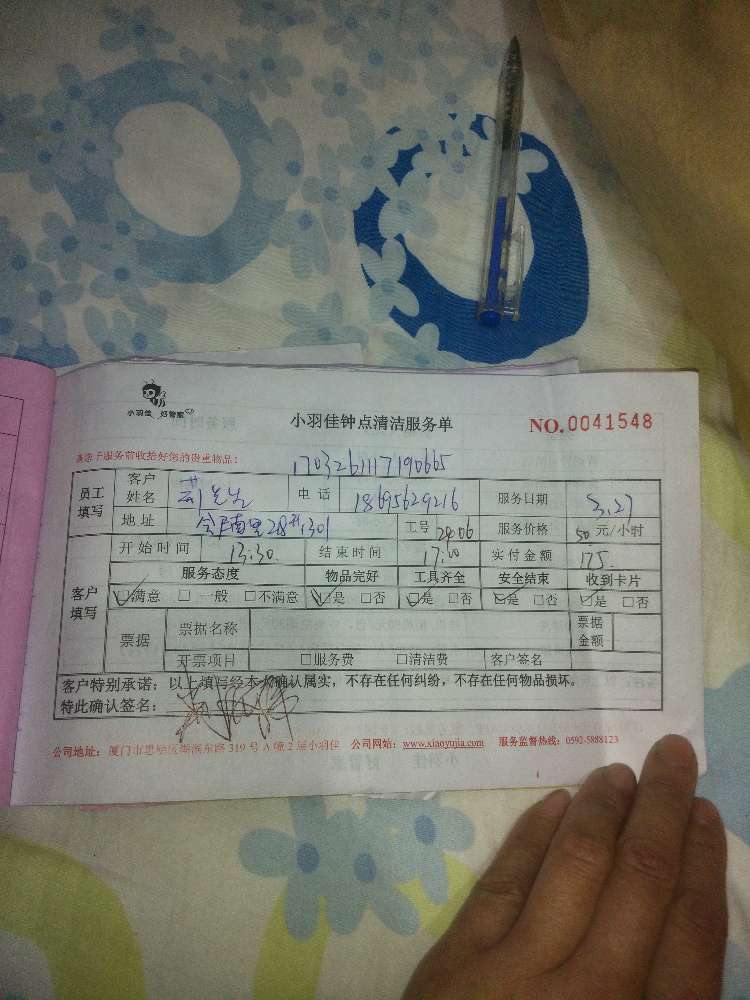 小羽佳 好管家
小羽佳钟点清洁服务单
NO.0041548
请您于服务前收拾好您的贵重物品：
1703261117190665
员工填写 客户姓名 先生 电话 18695629216 服务日期 3.27
地址 28 301 工号 2406 服务价格 50 元/小时
客户填写 开始时间 13:30 结束时间 17:00 实付金额 175.
服务态度 物品完好 工具齐全 安全结束 收到卡片
☑满意 □一般 □不满意 ☑是 □否 ☑是 □否 ☑是 □否 ☑是 □否
票据 票据名称 票据金额
开票项目 □服务费 □清洁费 客户签名
客户特别承诺：以上填写经本人确认属实，不存在任何纠纷，不存在任何物品损坏。
特此确认签名：
公司地址：厦门市思明区湖滨东路 319 号 A 幢 2 层小羽佳 公司网站：www.xiaoyujia.com 服务监督热线：0592-5888123